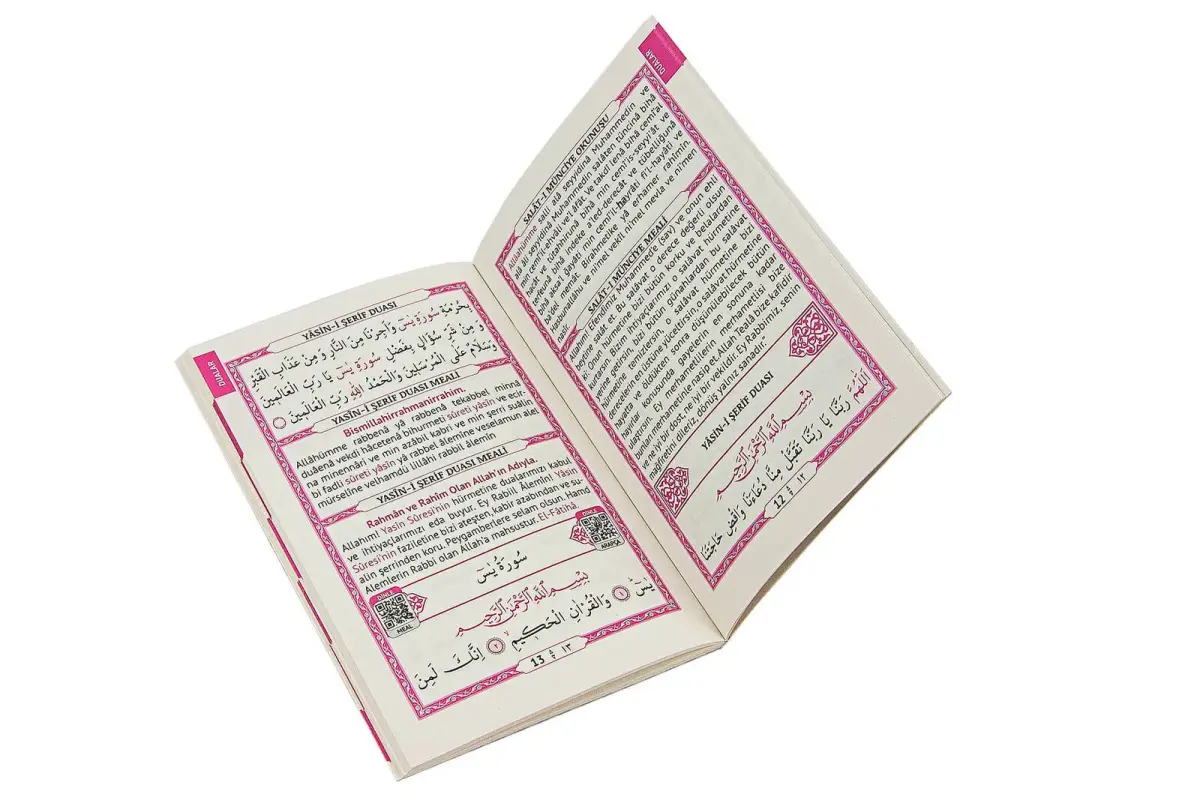 DUALAR
SALÂT-I MÜNCİYE OKUNUŞU
Allâhümme salli alâ seyyidinâ Muhammedin ve
alâ âli seyyidinâ Muhammedin salâten tüncinâ bihâ
min cemî'il-ehvâli ve'l âfât. Ve takdî lenâ bihâ cemî'al
hacât ve tütahhirunâ bihâ min cemî'is-seyyi'ât ve
terfeunâ bihâ indeke a'led-derecât ve tübelliğunâ
bihâ aksa'l ğayâti min cemî'il-hayrâti fi'l-hayâti ve
ba'del memât. Birahmetike yâ erhamer rahîmin.
Hasbunallâhu ve ni'mel vekîl ni'mel mevla ve ni'men
nasîr.
SALÂT-I MÜNCİYE MEALİ
Allah'ım! Efendimiz Muhammed'e (sav) ve onun ehli
beytine salât et. Bu salâvat o derece değerli olsun
ki: Onun hürmetine bizi bütün korku ve belalardan
kurtarsın. Bizim ihtiyaçlarımızı o salâvat hürmetine
yerine getirsin, bizi bütün günahlardan bu salâvat
hürmetine temizlersin, o salâvat hürmetine bizi
derecelerin en üstüne yüceltirsin, o salâvat hürmetine
hayatta ve öldükten sonra düşünülebilecek bütün
hayırlar konusunda gayelerin en sonuna kadar
ulaştırsın. Ey merhametlilerin merhametlisi bize
bunları merhametinle nasip et. Allah Teâlâ bize kafidir
ve ne iyi bir dost, ne iyi bir vekildir. Ey Rabbimiz, senin
mağfiretini dileriz, dönüş yalnız sanadır."
YÂSİN-İ ŞERİF DUASI
بِسْمِ اللّٰهِ الرَّحْمٰنِ الرَّحِيمِ
اَللّٰهُمَّ رَبَّنَا يَا رَبَّنَا تَقَبَّلْ مِنَّا دُعَاءَنَا وَاقْضِ حَاجَتَنَا
12 ١٢
DUALAR
YÂSİN-İ ŞERİF DUASI
بِحُرْمَةِ سُورَةِ يٰسٓ وَاَجِرْنَا مِنَ النَّارِ وَمِنْ عَذَابِ الْقَبْرِ
وَمِنْ شَرِّ سُؤَالٍ بِفَضْلِ سُورَةِ يٰسٓ يَا رَبِّ الْعَالَمِينَ
وَسَلَامٌ عَلَى الْمُرْسَلِينَ وَالْحَمْدُ لِلّٰهِ رَبِّ الْعَالَمِينَ
YÂSİN-İ ŞERİF DUASI MEALİ
Bismillahirrahmanirrahim.
Allâhümme rabbenâ yâ rabbenâ tekabbel minnâ
duâenâ vekdi hâcetenâ bihurmeti sûreti yâsîn ve ecir-
na minennâri ve min azâbil kabri ve min şerri suâlin
bi fadli sûreti yâsîn yâ rabbel âlemîne veselamun alel
mürselîne velhamdü lillâhi rabbil âlemîn
YASİN-İ ŞERİF DUASI MEALİ
Rahmân ve Rahîm Olan Allah'ın Adıyla.
Allahım! Yasîn Sûresi'nin hürmetine dualarımızı kabul
ve ihtiyaçlarımızı eda buyur. Ey Rabiil Âlemîn! Yâsîn
Sûresi'nin faziletine bizi ateşten, kabir azabından ve su-
alin şerrinden koru. Peygamberlere selam olsun. Hamd
Alemlerin Rabbi olan Allah'a mahsustur. El-Fâtihâ.
DİNLE
ARAPÇA
سُورَةُ يٰسٓ
بِسْمِ اللّٰهِ الرَّحْمٰنِ الرَّحِيمِ
DİNLE
MEAL
يٰسٓ ١ وَالْقُرْاٰنِ الْحَكِيمِ ٢ اِنَّكَ لَمِنَ
13 ١٣